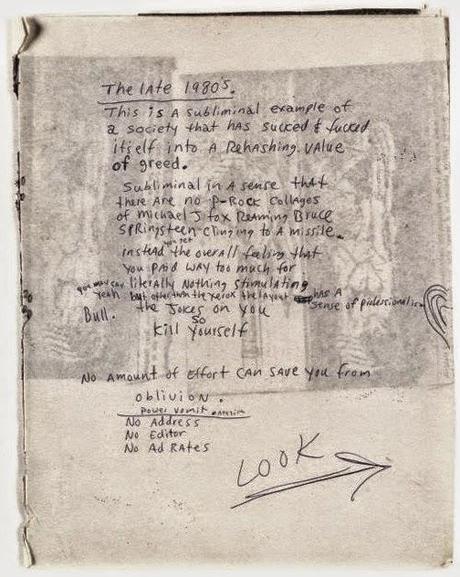 The late 1980's.
This is a subliminal example of
a society that has sucked & fucked
itself into a Rehashing value
of greed.
Subliminal in a sense that
there are no P-Rock collages
of michael J fox Reaming Bruce
SPRingsteen clinging to a missile.
instead you get the overall feeling that
you paid way too much for
literally Nothing stimulating
you may say yeah but other than the xerox the layout has a sense of professionalism
Bull. the Jokes on you
so
kill yourself
No amount of Effort can save you from
oblivion.
power vomit
No Address
No Editor
No Ad Rates
LOOK